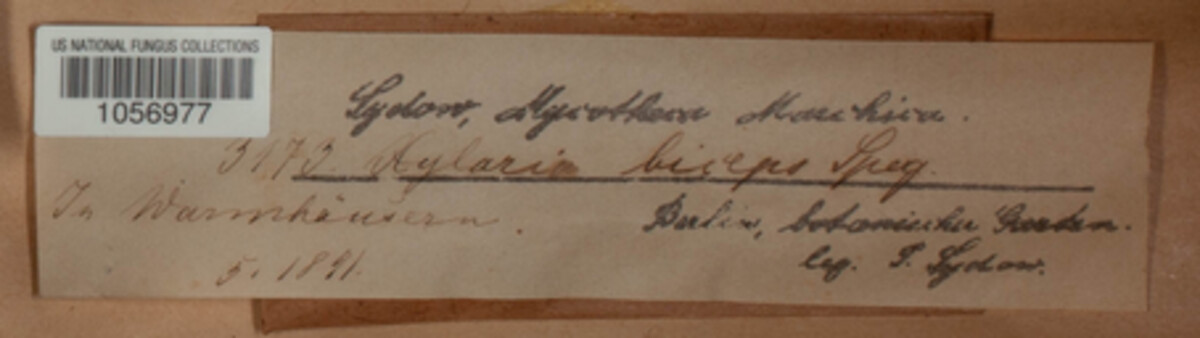 US NATIONAL FUNGUS COLLECTIONS
1056977
Sydow, Mycotheca Marchica.
3173 Xylaria biceps Speg.
In Warmhäusern.
Berlin, botanischer Garten.
5. 1891.
leg. P. Sydow.